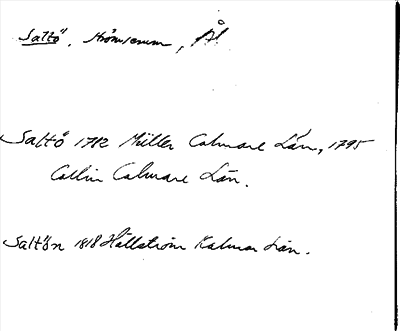 Saltö, Hrönsemm, Ål
Saltö 1712 Müller Calmare Län, 1795
Collin Calmare Län.
Saltön 1818 Hällström Kalmar Län.